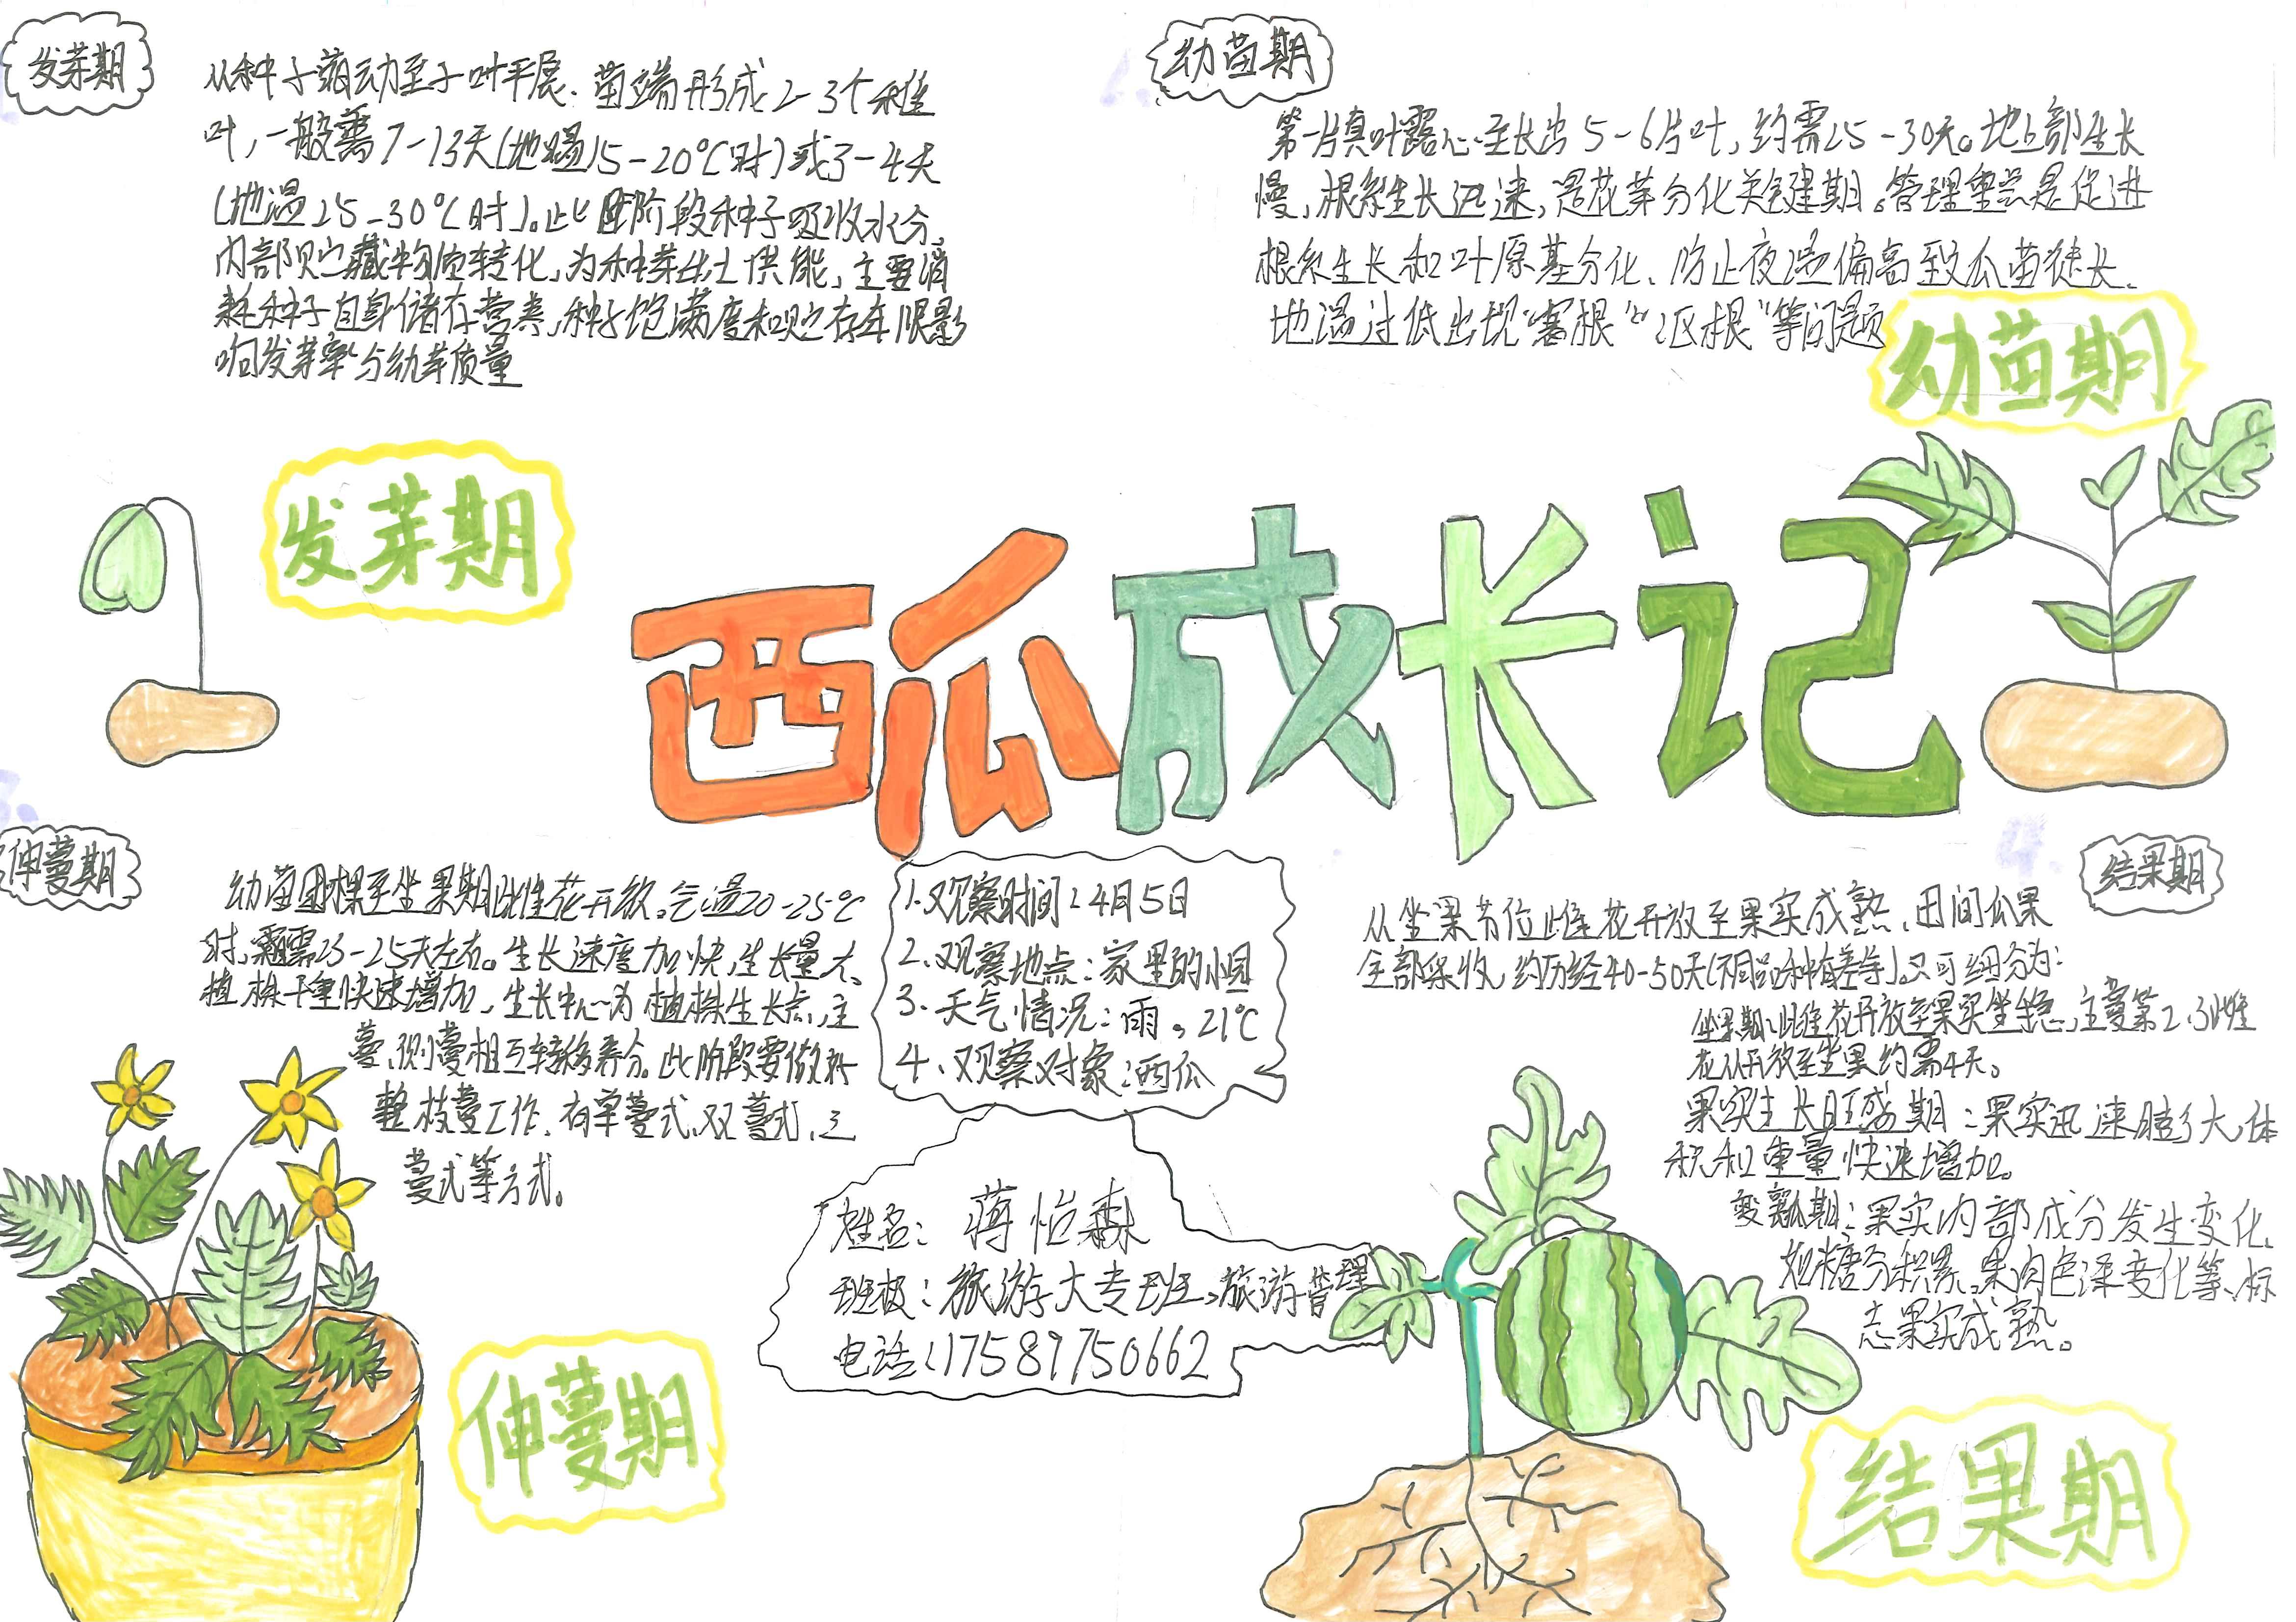 发芽期
从种子萌动至子叶平展、苗端形成2-3个稚
叶,一般需7-13天(地温15-20℃时)或3-4天
(地温25-30℃时)。此阶段种子吸收水分,
内部贮藏物质转化,为种芽出土供能,主要消
耗种子自身储存营养,种子饱满度和贮存年限影
响发芽率与幼芽质量
幼苗期
第一片真叶露心至长出5-6片叶,约需25-30天。地上部生长
慢,根系生长迅速,是花芽分化关键期。管理重点是促进
根系生长和叶原基分化、防止夜温偏高致瓜苗徒长、
地温过低出现“寒根”“沤根”等问题
幼苗期
发芽期
西瓜成长记
伸蔓期
幼苗团棵至坐果期雌花开放。气温20-25℃
时,需23-25天左右。生长速度加快,生长量大、
植株干重快速增加,生长中心为植株生长点,主
蔓、侧蔓相互转移养分。此阶段要做好
整枝蔓工作,有单蔓式、双蔓式、三
蔓式等方式。
1.观察时间:4月5日
2.观察地点:家里的小园
3.天气情况:雨。21℃
4.观察对象:西瓜
姓名:蒋怡森
班级:旅游大专班。旅游管理
电话:17589750662
结果期
从坐果节位雌花开放至果实成熟、田间瓜果
全部采收,约历经40-50天(不同品种有差异)。又可细分为:
坐果期:雌花开放至果实坐稳,主蔓第2、3雌
花从开放至坐果约需4天。
果实生长旺盛期:果实迅速膨大,体
积和重量快速增加。
变瓤期:果实内部成分发生变化,
如糖分积累,果肉色泽变化等、标
志果实成熟。
伸蔓期
结果期